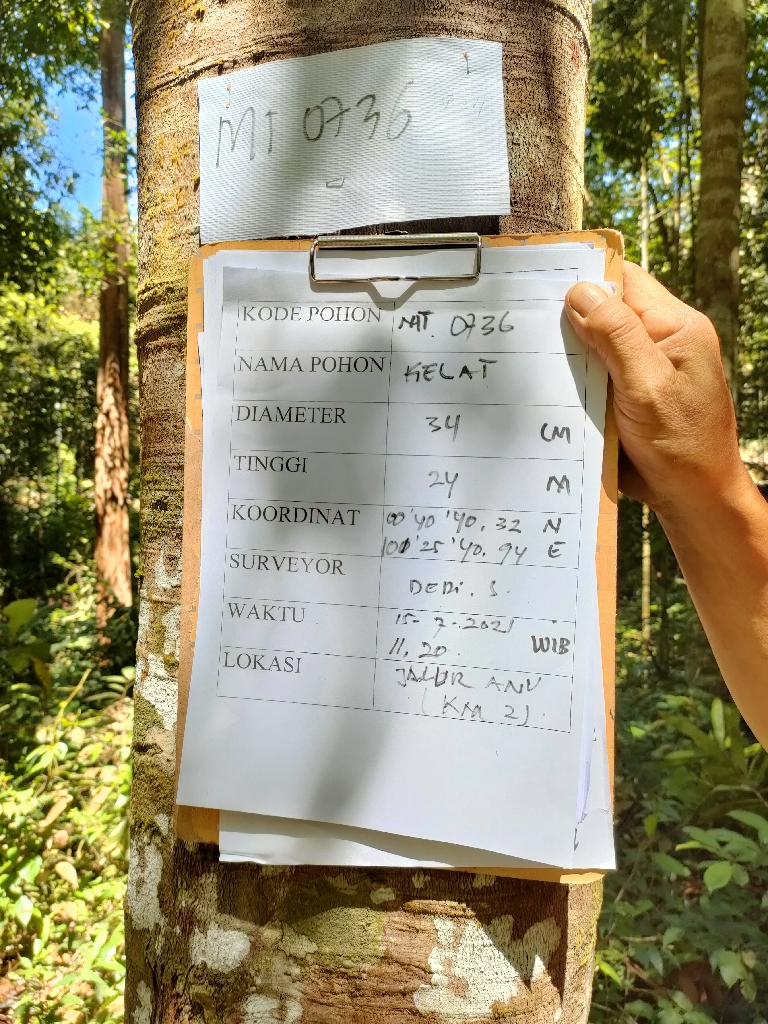 MT 0736
KODE POHON MT. 0736
NAMA POHON KELAT
DIAMETER 34 CM
TINGGI 24 M
KOORDINAT 00°40'40,32 N
100°25'40.94 E
SURVEYOR DEDI. S.
WAKTU 15-7-2021
11,20 WIB
LOKASI JALUR ANU
(KM 2)